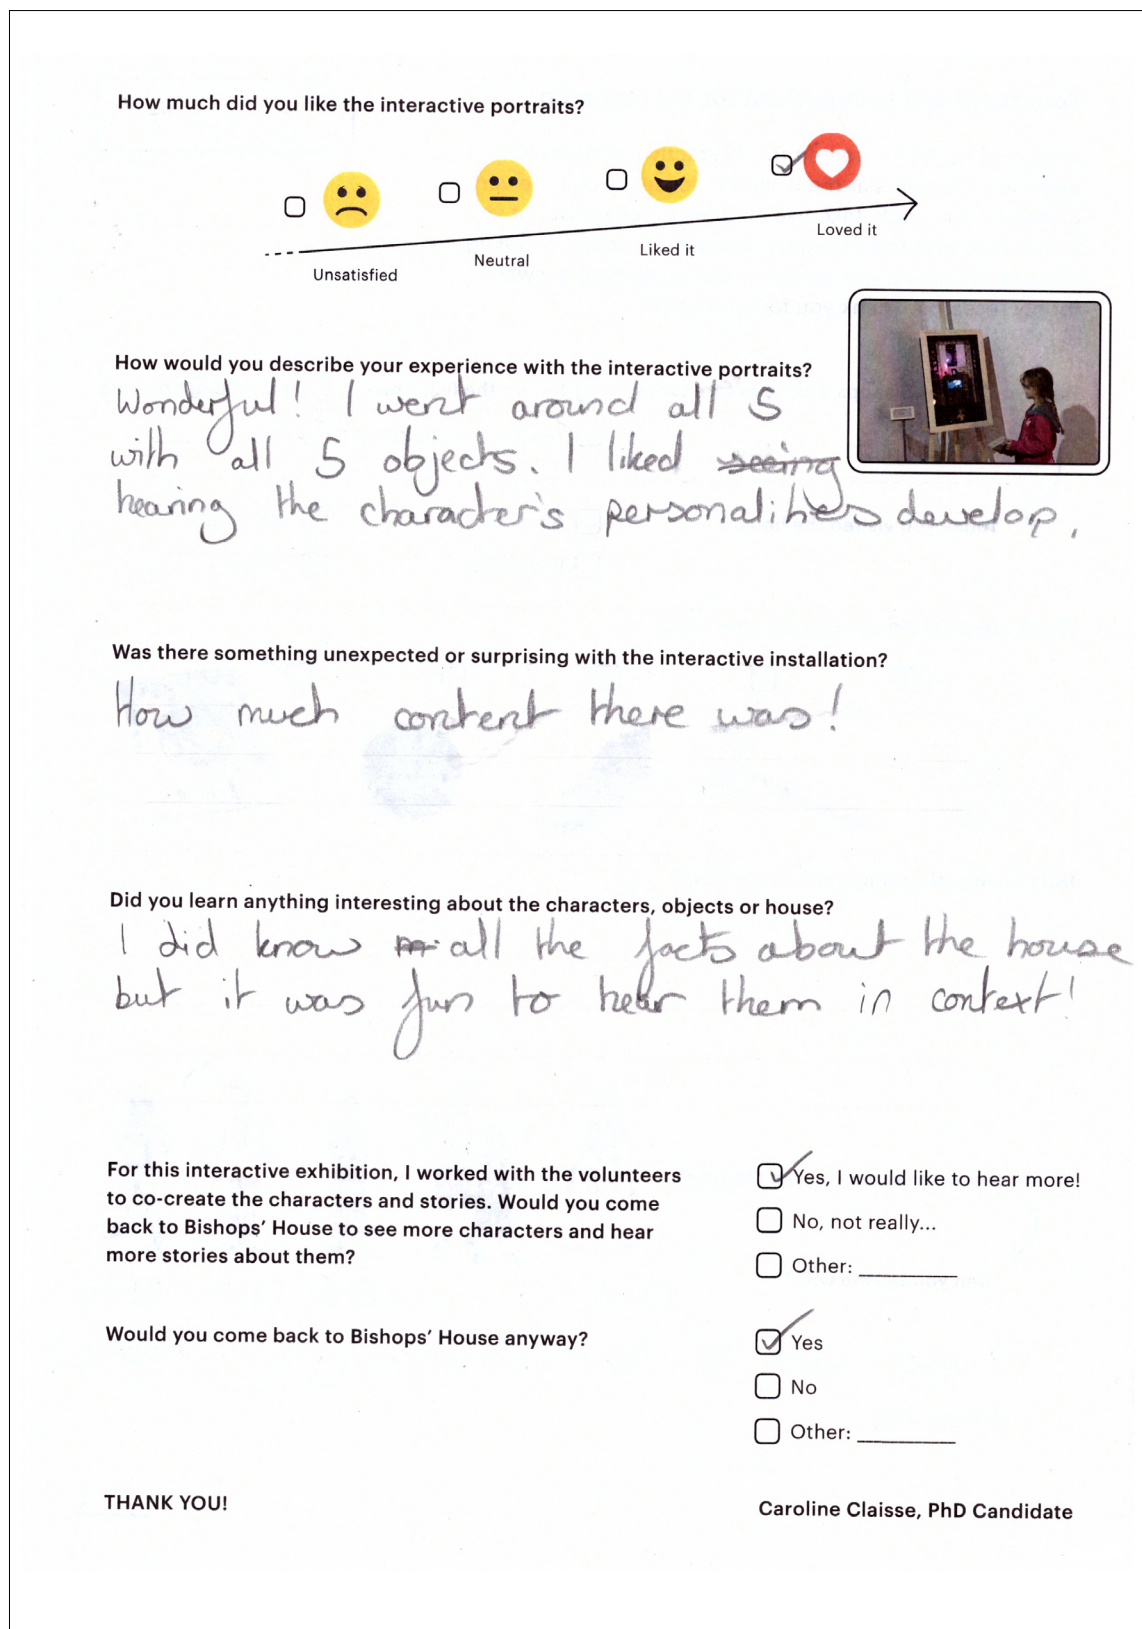 How much did you like the interactive portraits?
Unsatisfied
Neutral
Liked it
Loved it
How would you describe your experience with the interactive portraits?
Wonderful! I went around all 5
with all 5 objects. I liked seeing
hearing the character's personalities develop.
Was there something unexpected or surprising with the interactive installation?
How much content there was!
Did you learn anything interesting about the characters, objects or house?
I did know all the facts about the house
but it was fun to hear them in context!
For this interactive exhibition, I worked with the volunteers
to co-create the characters and stories. Would you come
back to Bishops' House to see more characters and hear
more stories about them?
Yes, I would like to hear more!
No, not really...
Other: __________
Would you come back to Bishops' House anyway?
Yes
No
Other: __________
THANK YOU!
Caroline Claisse, PhD Candidate